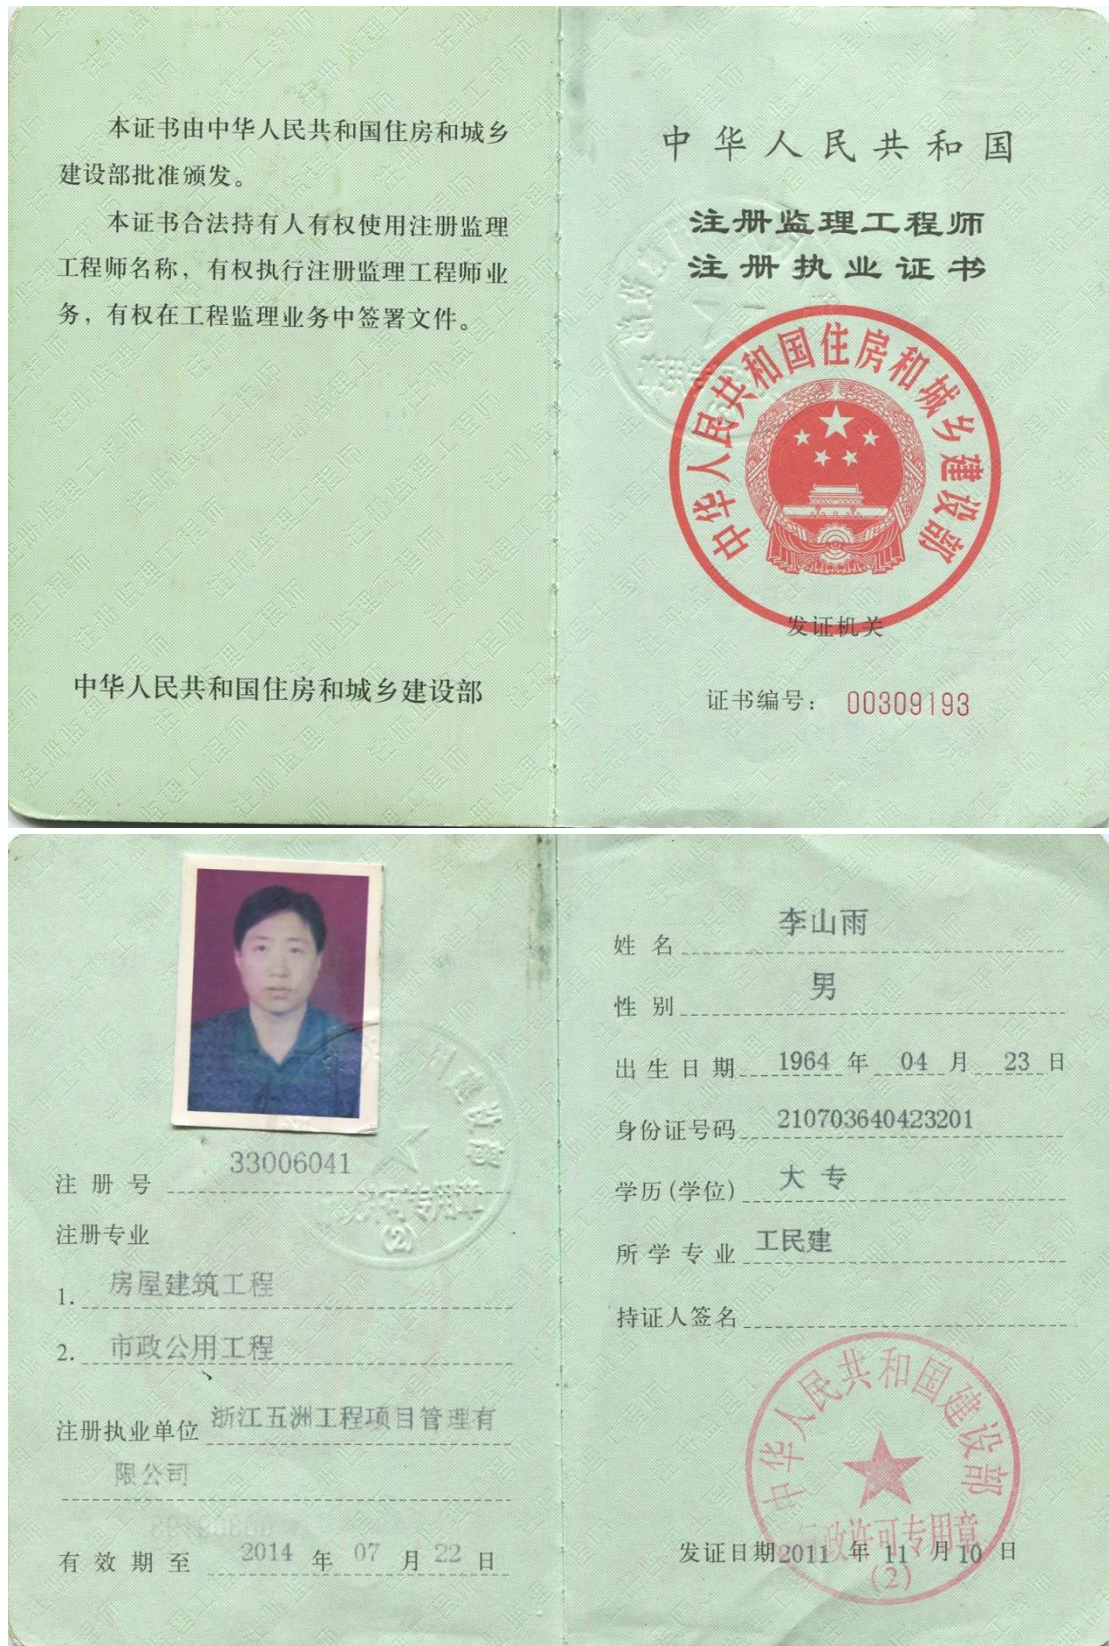 本证书由中华人民共和国住房和城乡
建设部批准颁发。
本证书合法持有人有权使用注册监理
工程师名称，有权执行注册监理工程师业
务，有权在工程监理业务中签署文件。
中华人民共和国住房和城乡建设部
中华人民共和国
注册监理工程师
注册执业证书
中华人民共和国住房和城乡建设部
发证机关
证书编号： 00309193
注册号 33006041
注册专业
1. 房屋建筑工程
2. 市政公用工程
注册执业单位 浙江五洲工程项目管理有
限公司
有效期至 2014 年 07 月 22 日
姓名 李山雨
性别 男
出生日期 1964 年 04 月 23 日
身份证号码 210703640423201
学历(学位) 大专
所学专业 工民建
持证人签名
中华人民共和国建设部
行政许可专用章
(2)
发证日期 2011 年 11 月 10 日